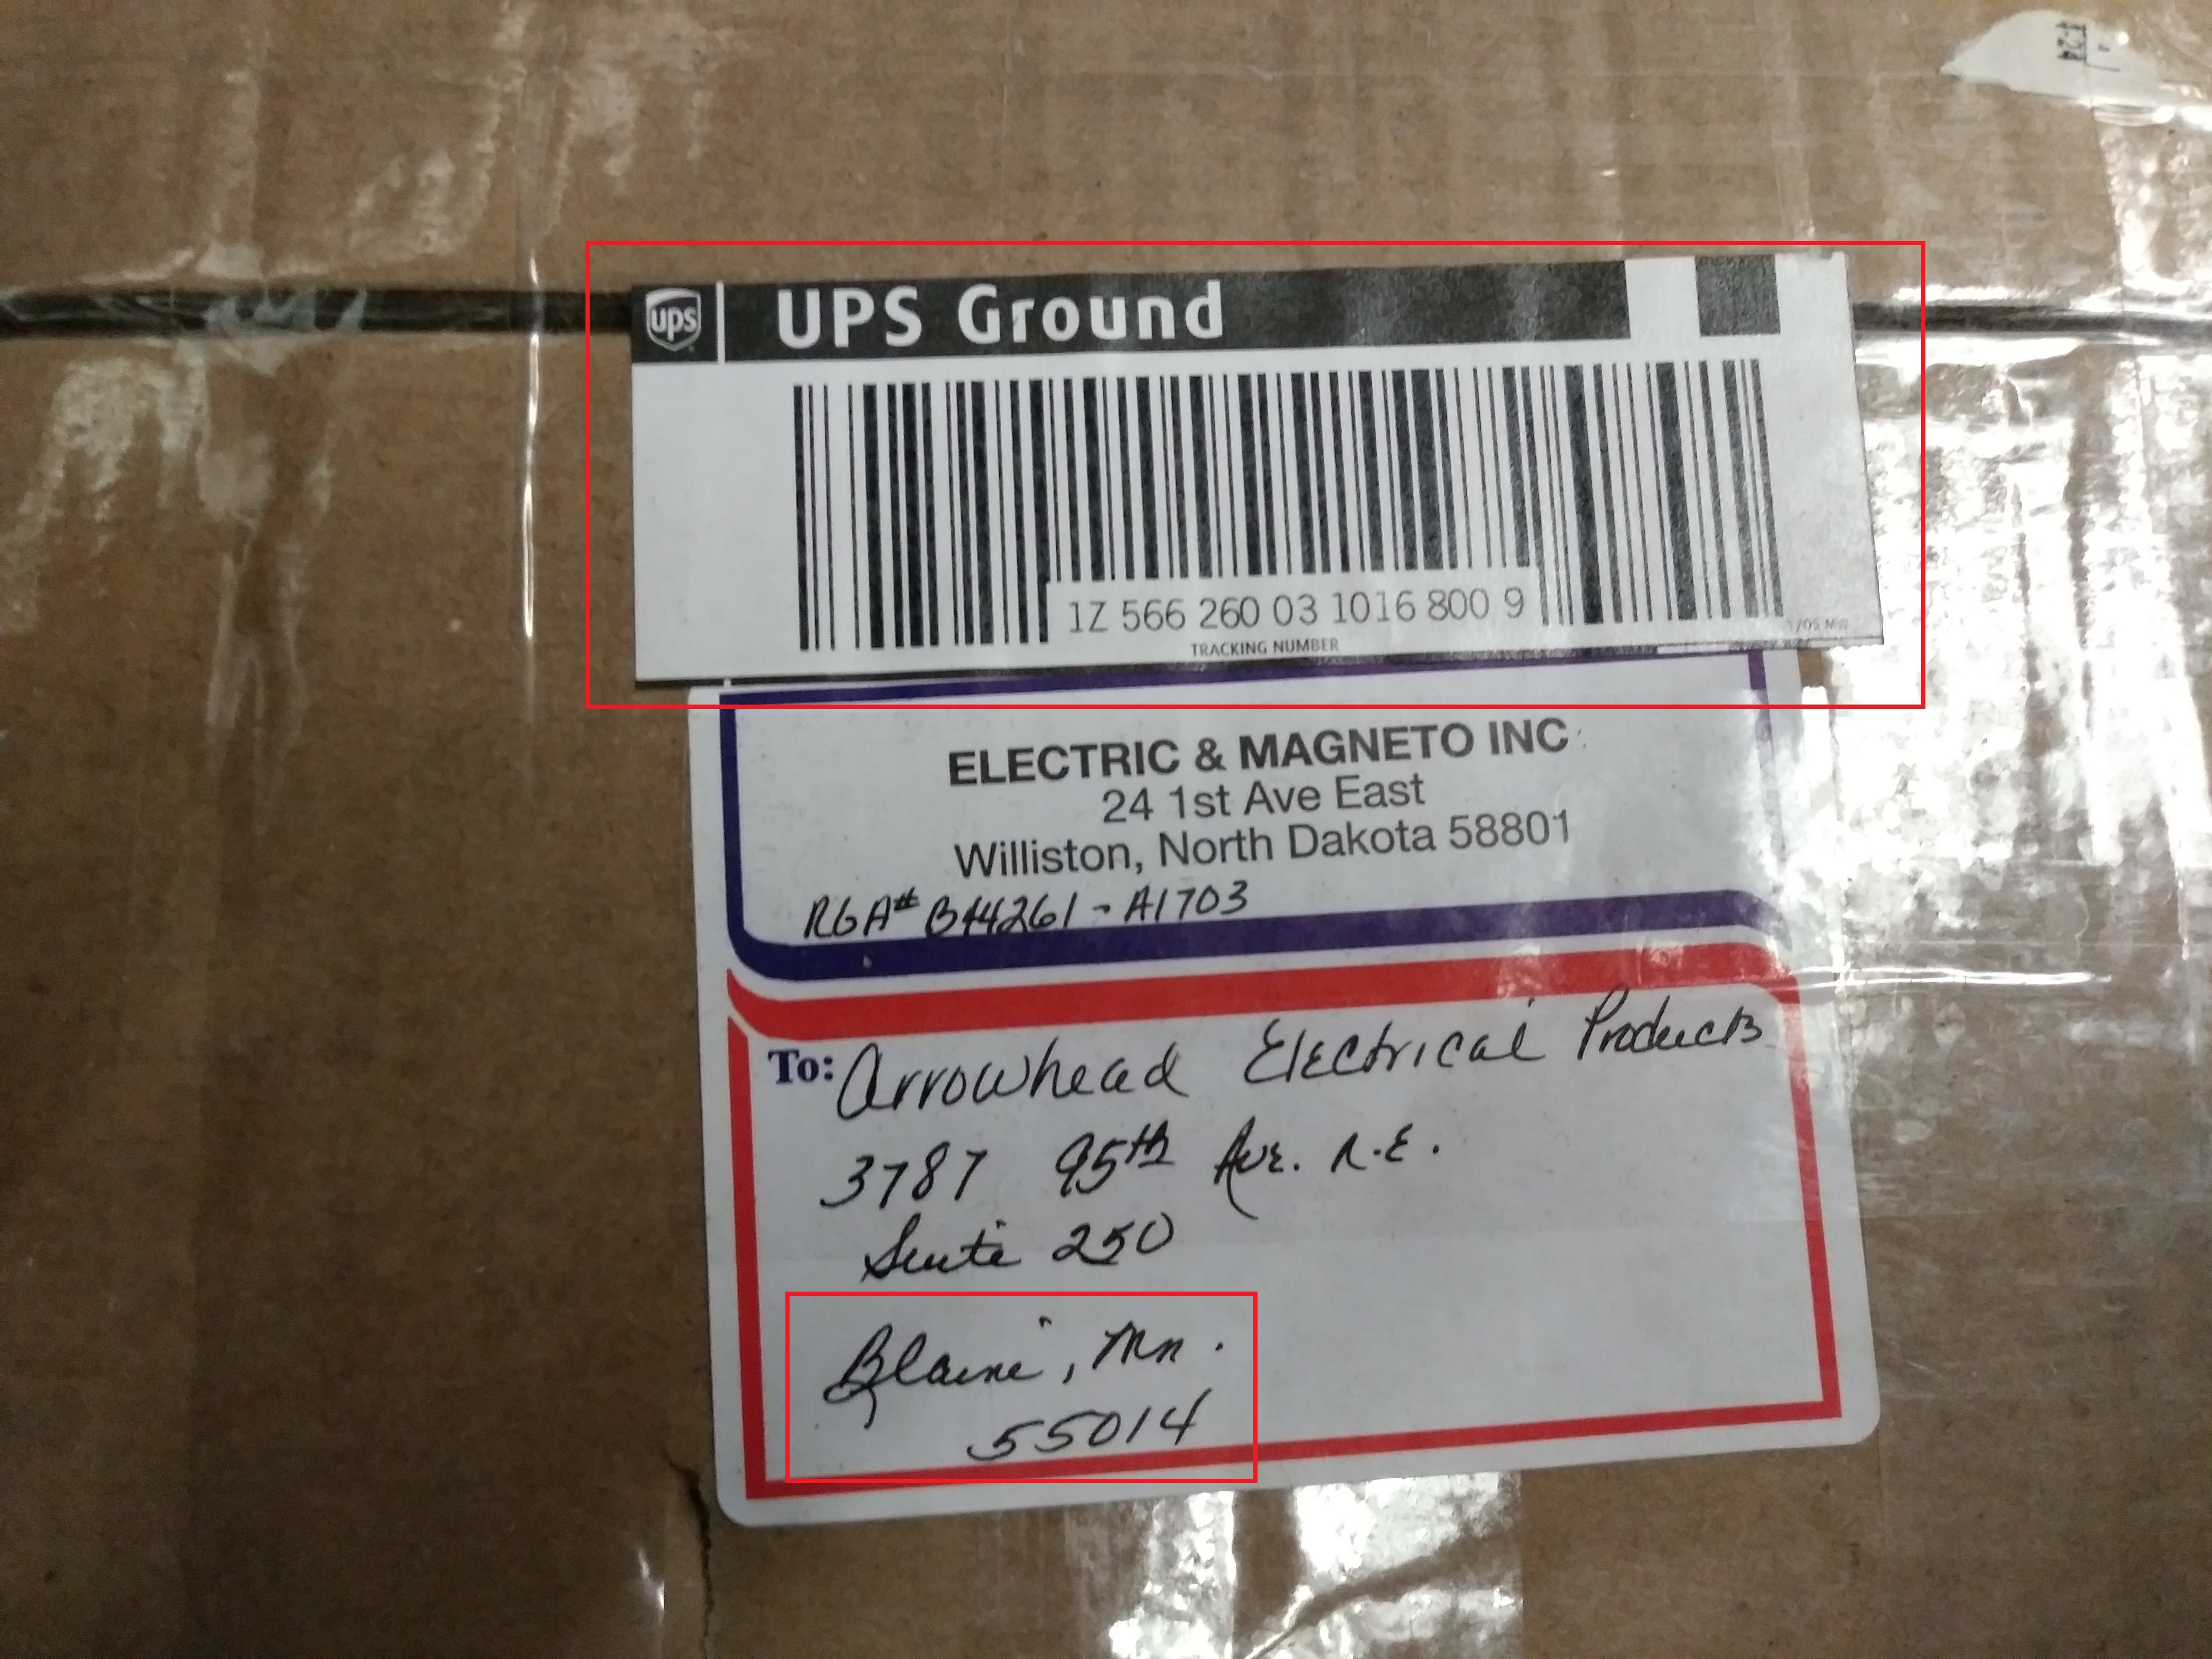 ups UPS Ground
1Z 566 260 03 1016 800 9
TRACKING NUMBER
ELECTRIC & MAGNETO INC
24 1st Ave East
Williston, North Dakota 58801
RGA# B44261-A1703
To: Arrowhead Electrical Products
3787 95th Ave. N.E.
Suite 250
Blaine, Mn.
55014